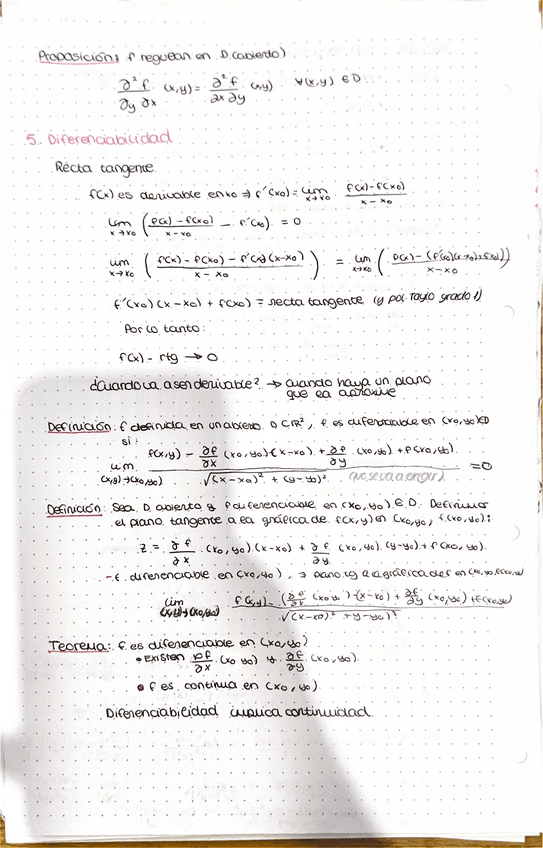 Proposición: f regular en D (abierto)
∂²f/∂y∂x (x,y) = ∂²f/∂x∂y (x,y) ∀(x,y) ∈ D
5. Diferenciabilidad
Recta tangente
f(x) es derivable en x0 ⇒ f'(x0) = lim x→x0 f(x)-f(x0)/x-x0
lim x→x0 (f(x)-f(x0)/x-x0 - f'(x0)) = 0
lim x→x0 (f(x)-f(x0)-f'(x0)(x-x0)/x-x0) = lim x→x0 (f(x)-(f'(x0)(x-x0)+f(x0))/x-x0)
f'(x0)(x-x0) + f(x0) = recta tangente (y pol. Taylo grado 1)
Por lo tanto:
f(x) - rtg → 0
¿Cuando va a ser derivable? → cuando haya un plano
que la aproxime
Definición: f definida en un abierto D ⊂ IR², f es diferenciable en (x0,y0) ∈ D
si:
lim (x,y)→(x0,y0) f(x,y) - ∂f/∂x (x0,y0)·(x-x0) + ∂f/∂y (x0,y0) + f(x0,y0)/√(x-x0)² + (y-y0)² = 0
(No se va a exigir)
Definición: Sea D abierto y f diferenciable en (x0,y0) ∈ D. Definimos
el plano tangente a la gráfica de f(x,y) en (x0,y0, f(x0,y0)):
z = ∂f/∂x (x0,y0)(x-x0) + ∂f/∂y (x0,y0)·(y-y0) + f(x0,y0)
- f diferenciable en (x0,y0) ⇒ plano tg a la gráfica de f en (x0,y0,f(x0,y0))
lim (x,y)→(x0,y0) f(x,y) - (∂f/∂x (x0,y0)·(x-x0) + ∂f/∂y (x0,y0) + f(x0,y0)/√(x-x0)² + y-y0)²
Teorema: f es diferenciable en (x0,y0)
• Existen ∂f/∂x (x0,y0) y ∂f/∂y (x0,y0)
• f es continua en (x0,y0)
Diferenciabilidad implica continuidad